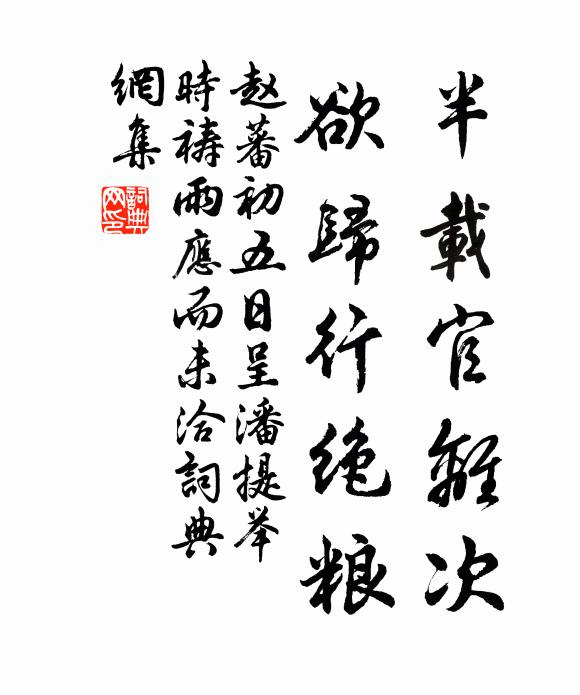 半載官離次
欲歸行绝粮
赵蕃初五日呈潘提举
時祷雨應而未洽詞典
網集
詞典网印